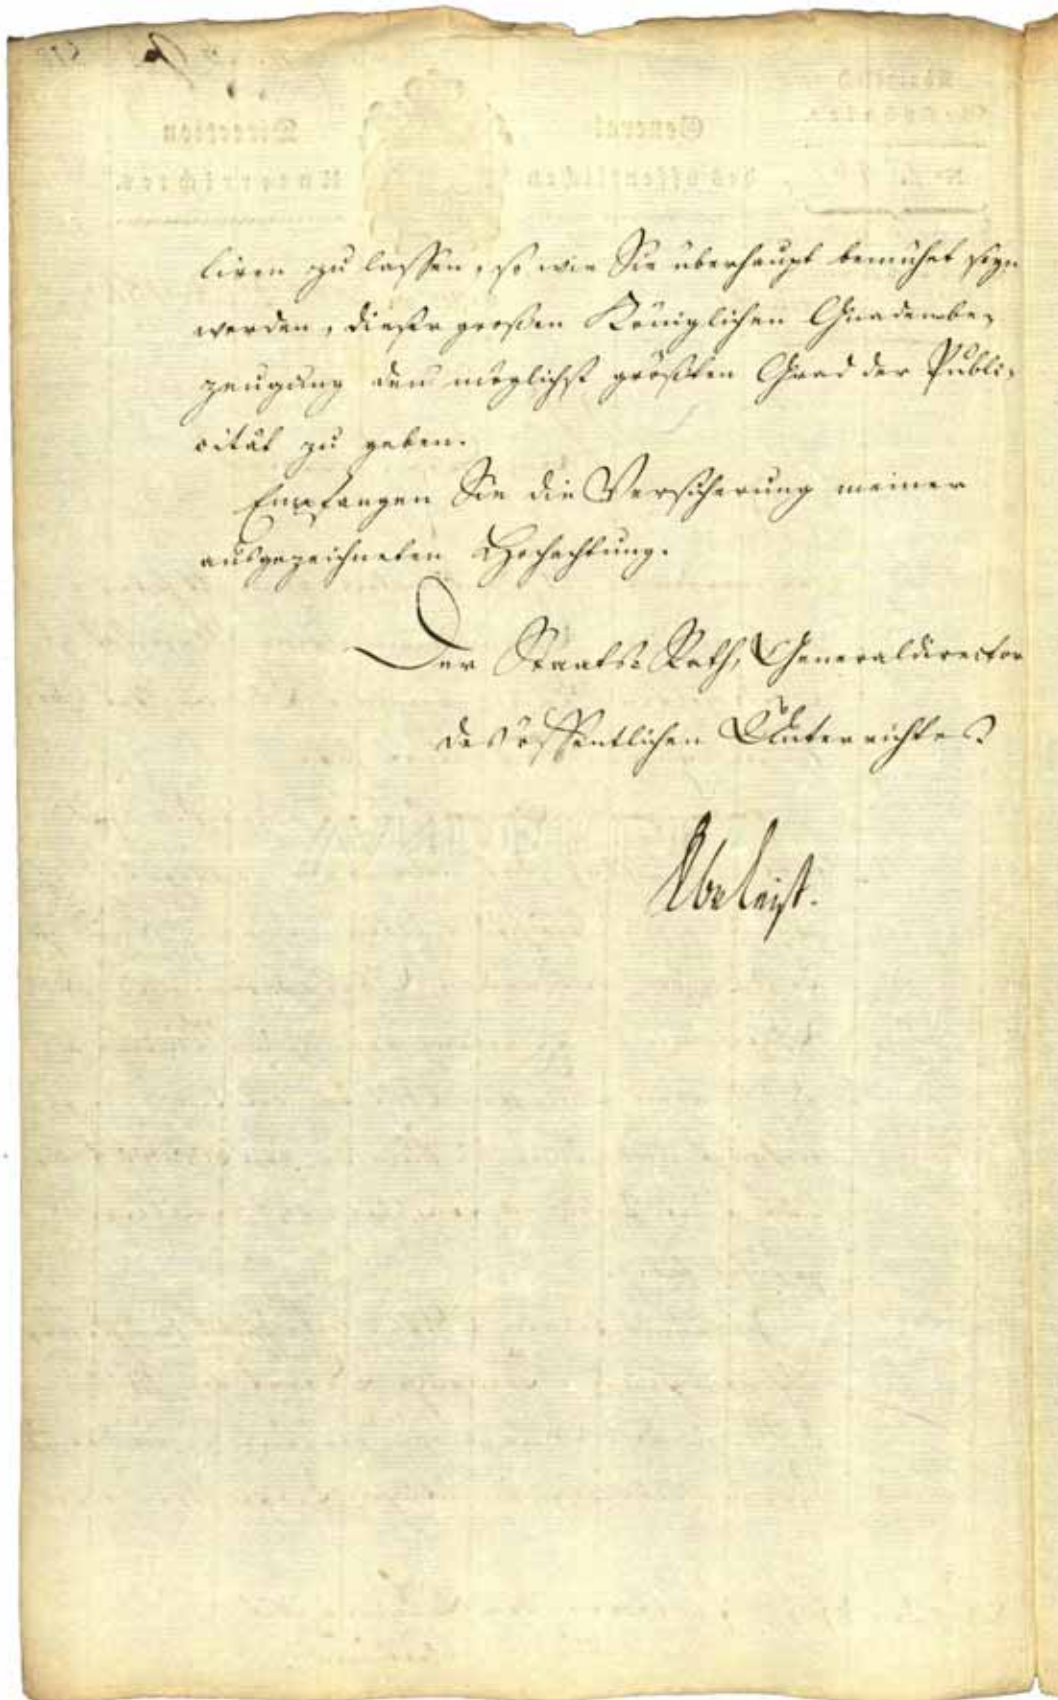 liren zu lassen, so wie Sie überhaupt bemühet seyn
werden, dieser großen Königlichen Gnadenbe-
zeugung den möglichst größten Grad der Publi-
cität zu geben.
Empfangen Sie die Versicherung meiner
ausgezeichneten Hochachtung.
Der Staats-Rath, Generaldirector
des öffentlichen Unterrichtes.
Leist.